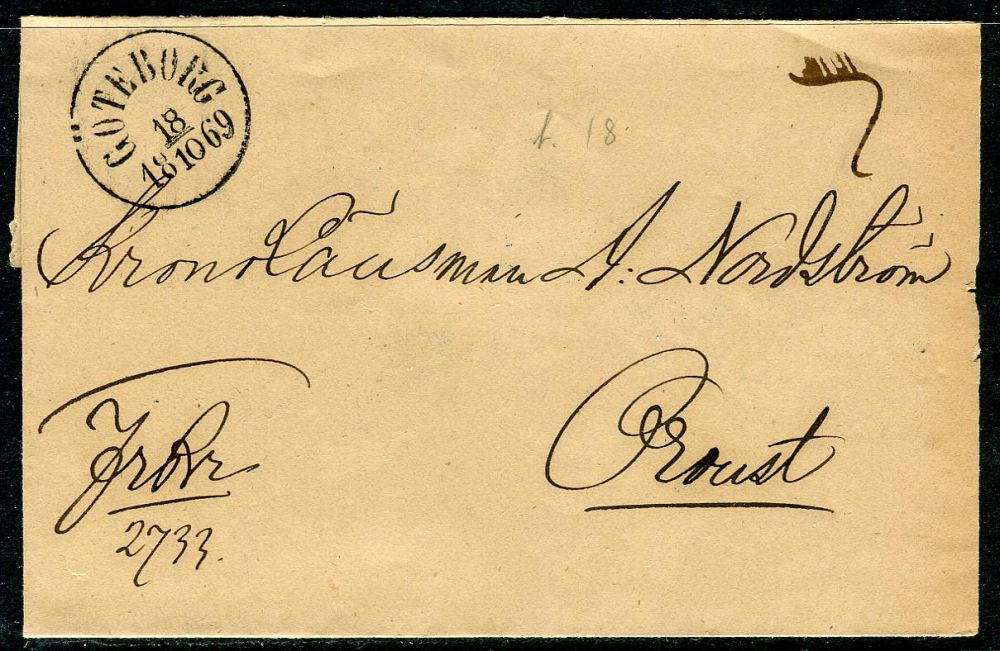 GÖTEBORG
18
18 10 69
f. 18
Kronolänsman A: Nordström
Oroust
FrBr
2733.